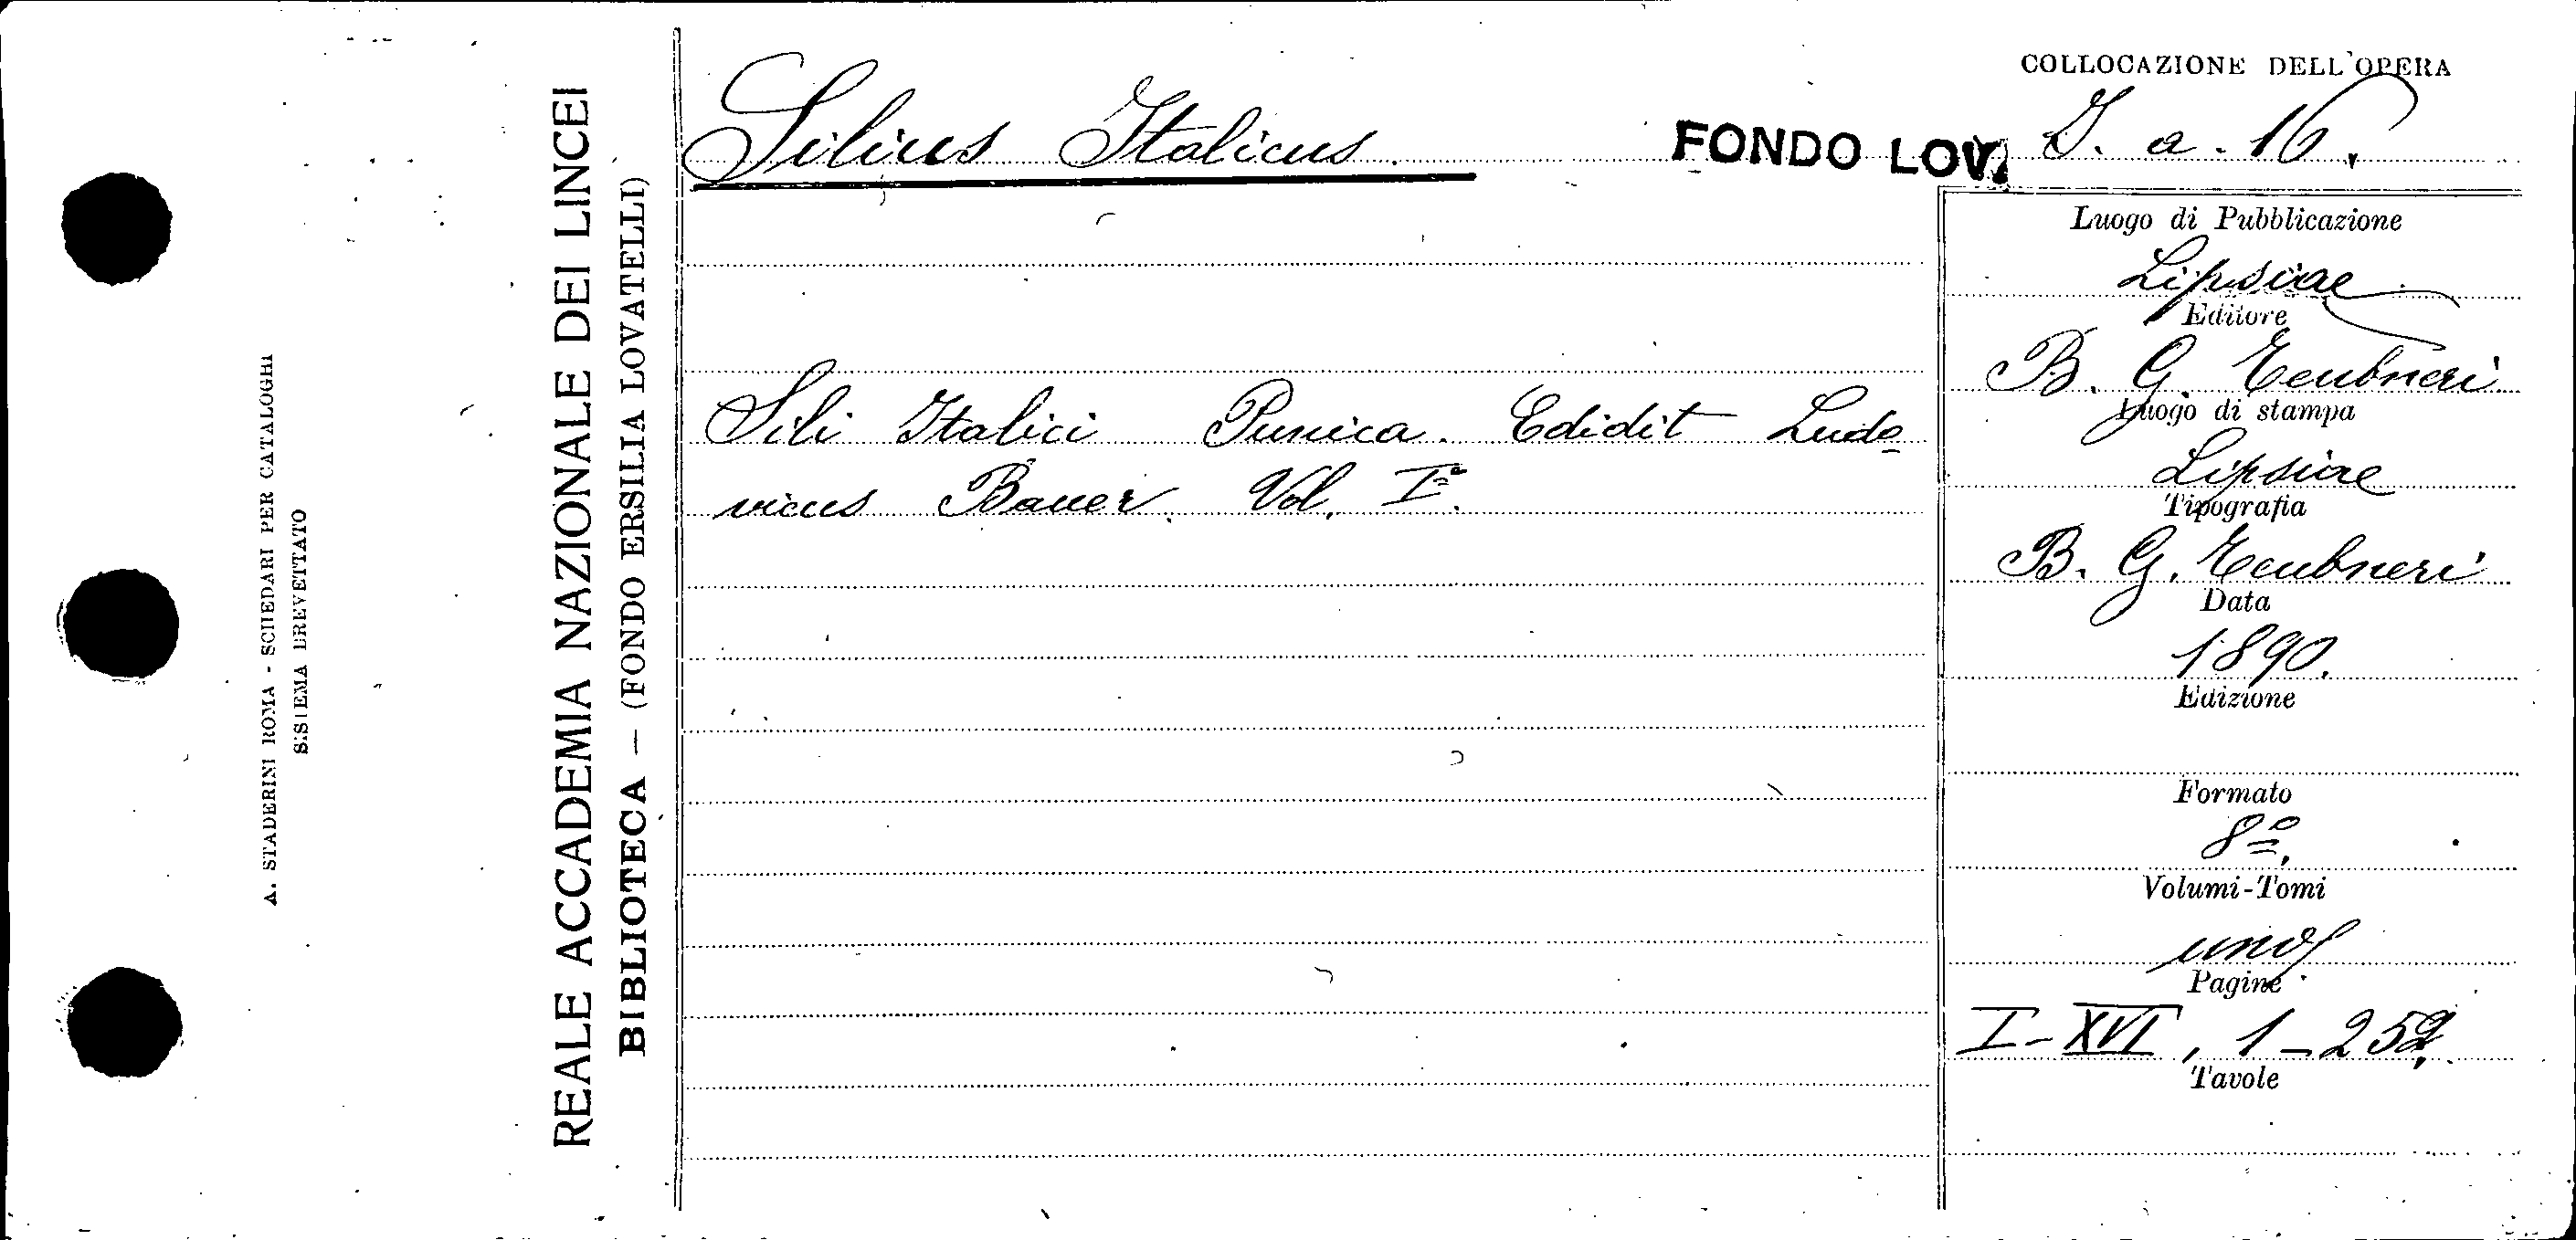 A. STADERINI ROMA - SCHEDARI PER CATALOGHI
SISTEMA BREVETTATO
REALE ACCADEMIA NAZIONALE DEI LINCEI
BIBLIOTECA — (FONDO ERSILIA LOVATELLI)
Silius Italicus.
FONDO LOV.
COLLOCAZIONE DELL'OPERA
I. a. 16.
Sili Italici Punica. Edidit Ludo
vicus Bauer. Vol. Iº.
Luogo di Pubblicazione
Lipsiae
Editore
B. G. Teubneri
Luogo di stampa
Lipsiae
Tipografia
B. G. Teubneri
Data
1890.
Edizione
Formato
8º.
Volumi-Tomi
uno
Pagine
I-XVI, 1-252.
Tavole